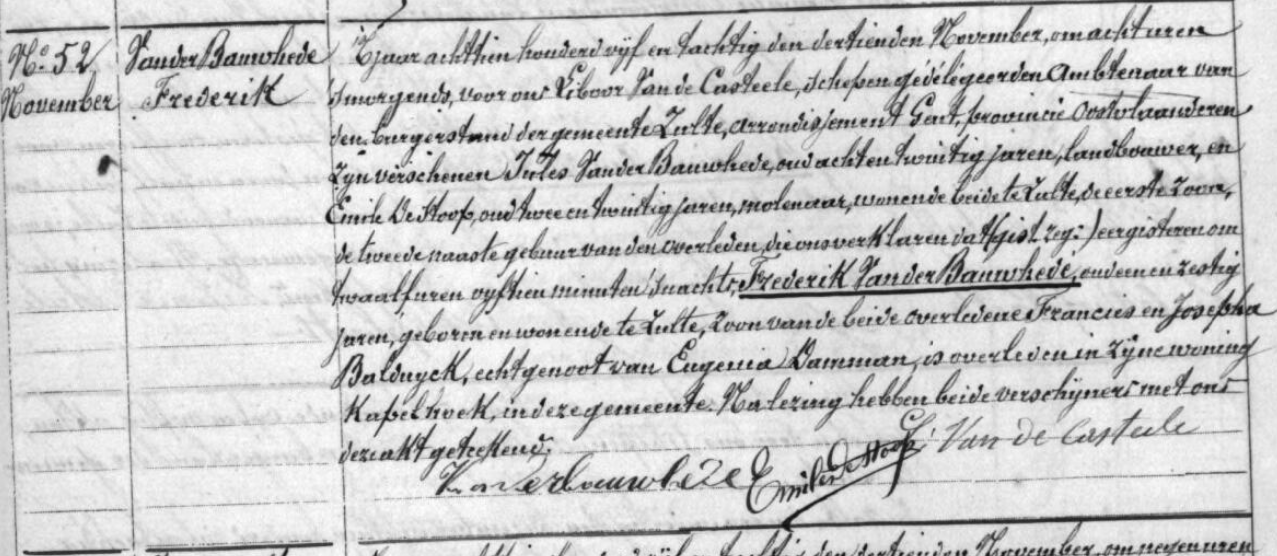 No 52
November
Vander Bauwhede
Frederik
'T jaar achttien honderd vijf en tachtig den dertienden November, om acht uren
smorgends, voor ons Liboor Van de Casteele, schepen gedélégeerden Ambtenaar van
den burgerstand der gemeente Zulte, arrondissement Gent, provincie Oostvlaanderen
zijn verschenen Jules Vander Bauwhede, oud acht en twintig jaren, landbouwer, en
Emile De Stoop, oud twee en twintig jaren, molenaar, wonende beide te Zulte, de eerste zoon,
de tweede naaste gebuur van den overleden, die ons verklaren dat (gist. zeg:) eergisteren om
twaalf uren vijftien minuten snachts, Frederik Vander Bauwhede, oud een en zestig
jaren, geboren en wonende te Zulte, zoon van de beide overledene Francies en Josepha
Balduyck, echtgenoot van Eugenia Damman, is overleden in zijne woning
Kapelhoek, in deze gemeente. Na lezing hebben beide verschijners met ons
deze akt geteekend.
Vanderbauwhede Emile De Stoop L. Van de Casteele
den dertienden November, om negen uren